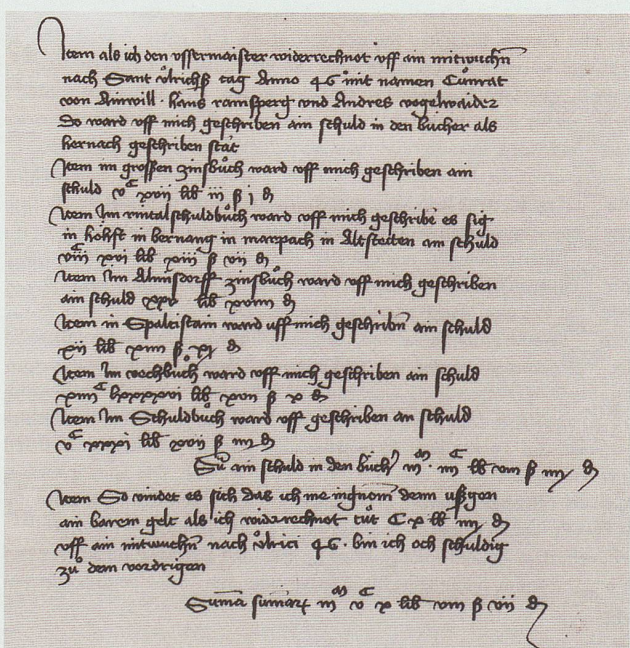 Item als ich den ussermaister widerrechnot uff ain mitwuchn
nach Sant ůlrichs tag Anno 46 mit namen Cůnrat
von Ainwill. hans ramsperg vnd Andres vogelwaider
Do ward uff mich geschriben ain schuld in den bůcher als
hernach geschriben stât
Item im grossen zinsbůch ward uff mich geschriben ain
schuld vC xvii lib iii ß j d
Item Im rintalschuldbůch ward uff mich geschribē es sig
in hohst in bernang in marpach in Altstetten ain schuld
xvi lib xiii ß vii d
Item Im Almsdorff zinsbůch ward uff mich geschriben
ain schuld lib d
Item in Spaltistain ward uff mich geschribn ain schuld
xii lib xiiii ß xj d
Item Im wochbůch ward uff mich geschriben ain schuld
lib xvii ß x d
Item Im Schuldbůch ward uff geschriben an schuld
vC xxxi lib xvii ß iii d
Sū ain schuld in den bůch' lb viii ß iiij d
Item So vindet es sich das ich me ingnom denn ußgon
ain barem gelt als ich widerrechnot tůt C x lb iiij d
uff ain mitwuchn nach ůlrici 46. bin ich och schuldig
zů dem vordrigon
Suma sumarum iiiM vC x lib viii ß vii d